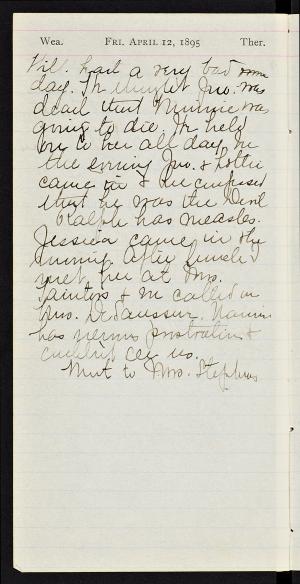 Wea. FRI. APRIL 12, 1895 Ther.
Will. had a very bad
day. Thought Jno. was
dead that Minnie was
going to die. He held
on to her all day. In
the evening Jno. & Lottie
came in & he confessed
that he was the Devil
Ralph has measles.
Jessica came in the
morning after lunch I
met her at Mrs.
Sainters & we called on
Mrs. DeSaussur. Nannie
has nervous prostration &
couldn't see us.
Went to Mrs. Stephens